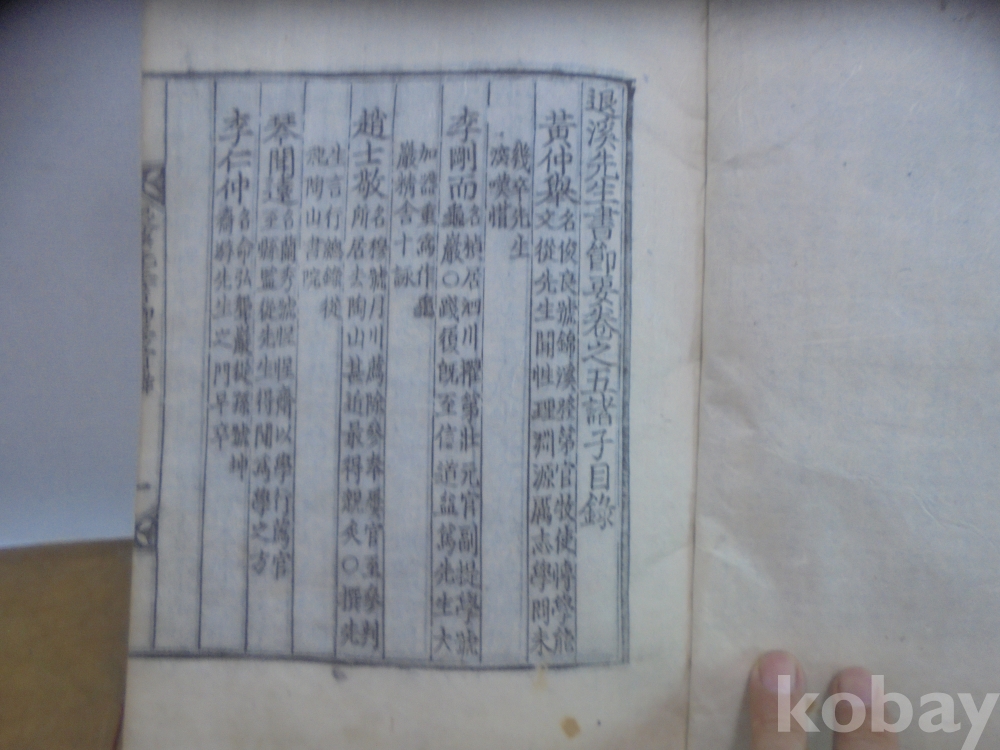 退溪先生書節要卷之五諸子目錄
黃仲擧名俊良號錦溪登第官牧使博學能
文從先生聞性理淵源厲志學問未
幾卒先生
嗟惜
李剛而名楨居泗川擢第壯元官副提學號
龜巖○踐履旣至信道益篤先生大
加證重爲作龜
巖精舍十詠
趙士敬名穆號月川薦除參奉屢官至參判
所居去陶山甚近最得親炙○撰先
生言行總錄從
院陶山書院
琴聞遠名蘭秀號惺惺齋以學行薦官
至縣監從先生得聞爲學之方
李仁仲名命弘聾巖從孫號坤
齋游先生之門早卒
kobay